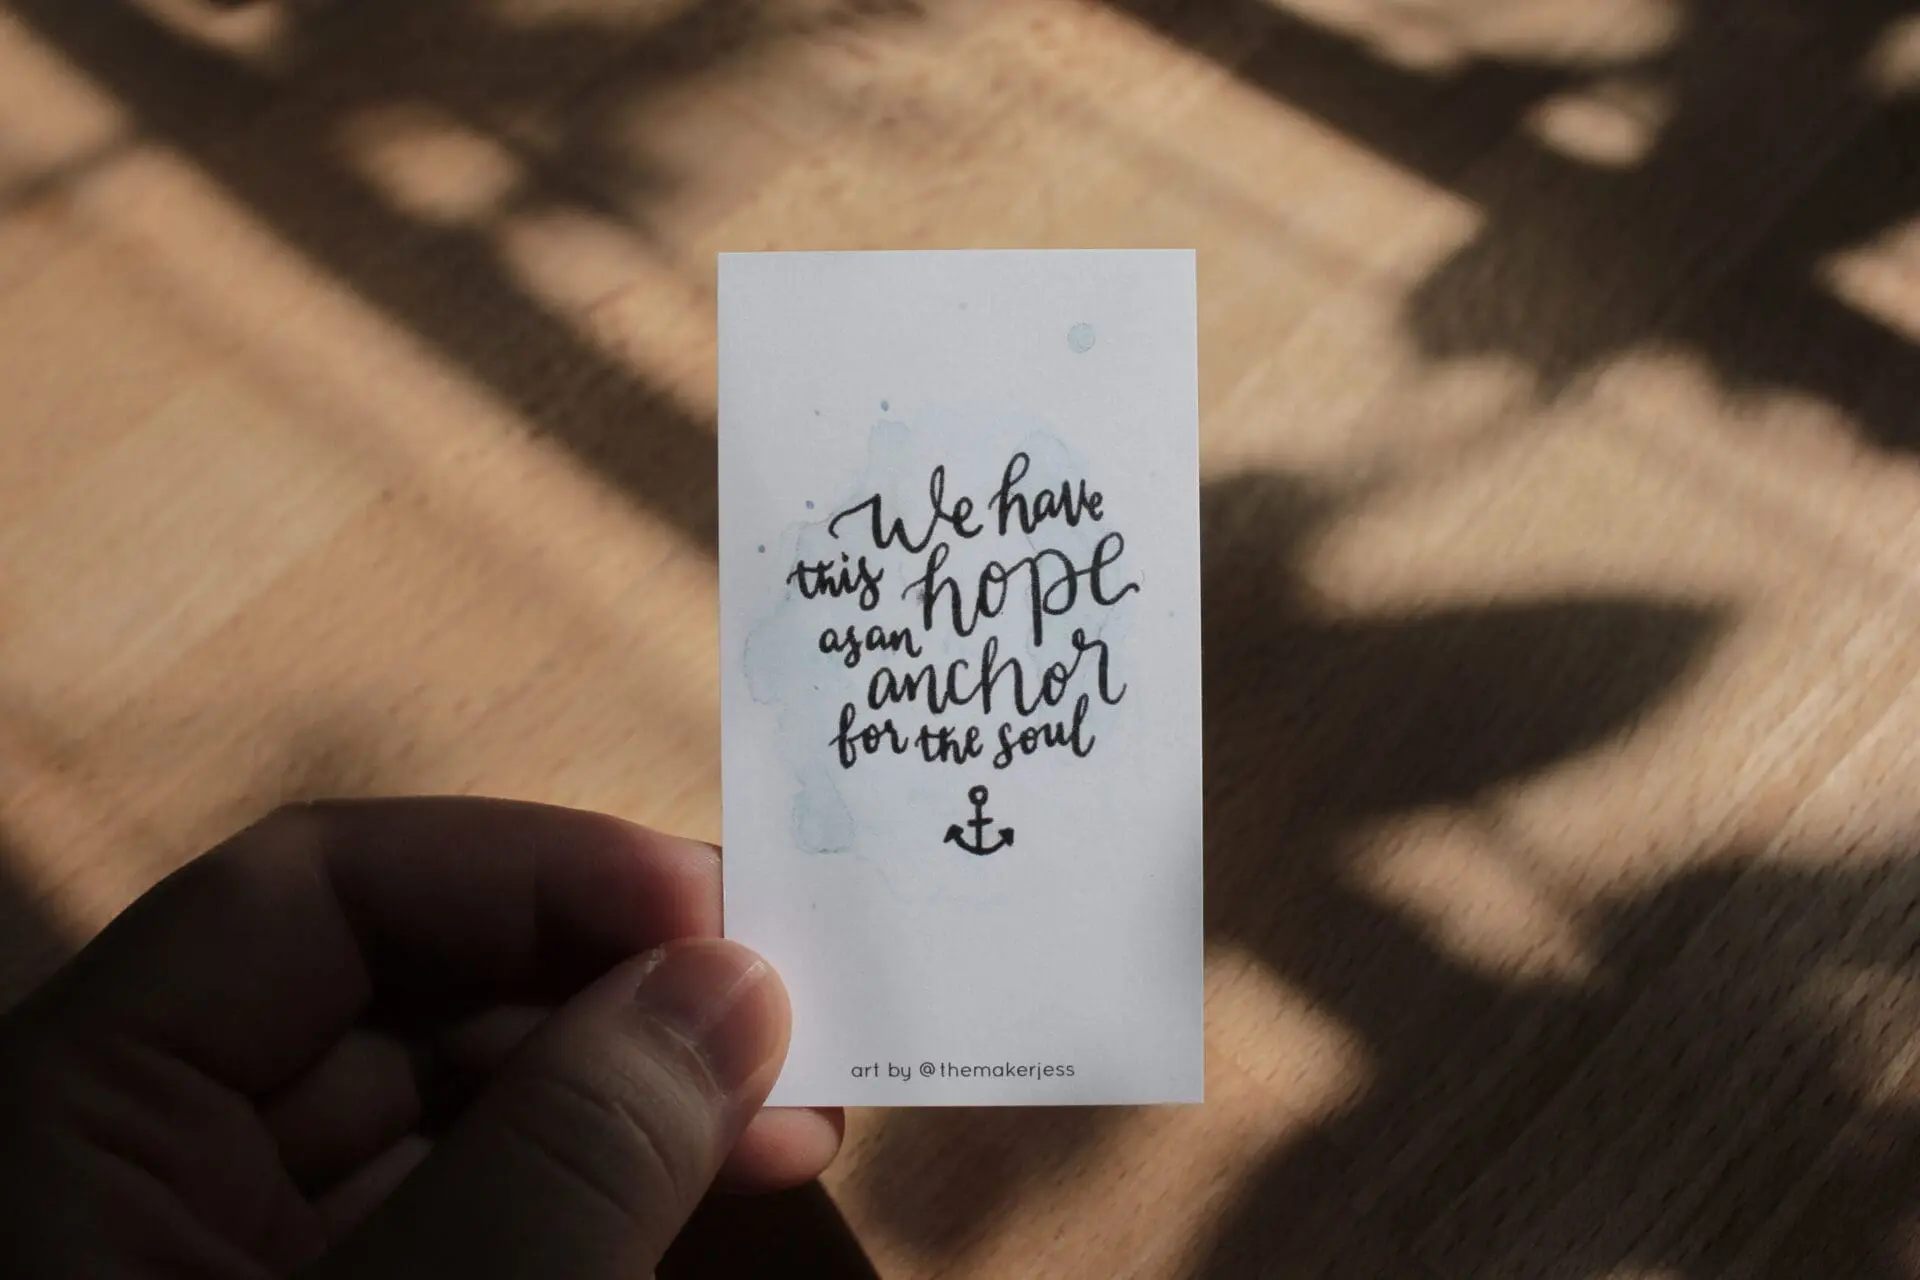 We have
this hope
as an
anchor
for the soul
art by @themakerjess